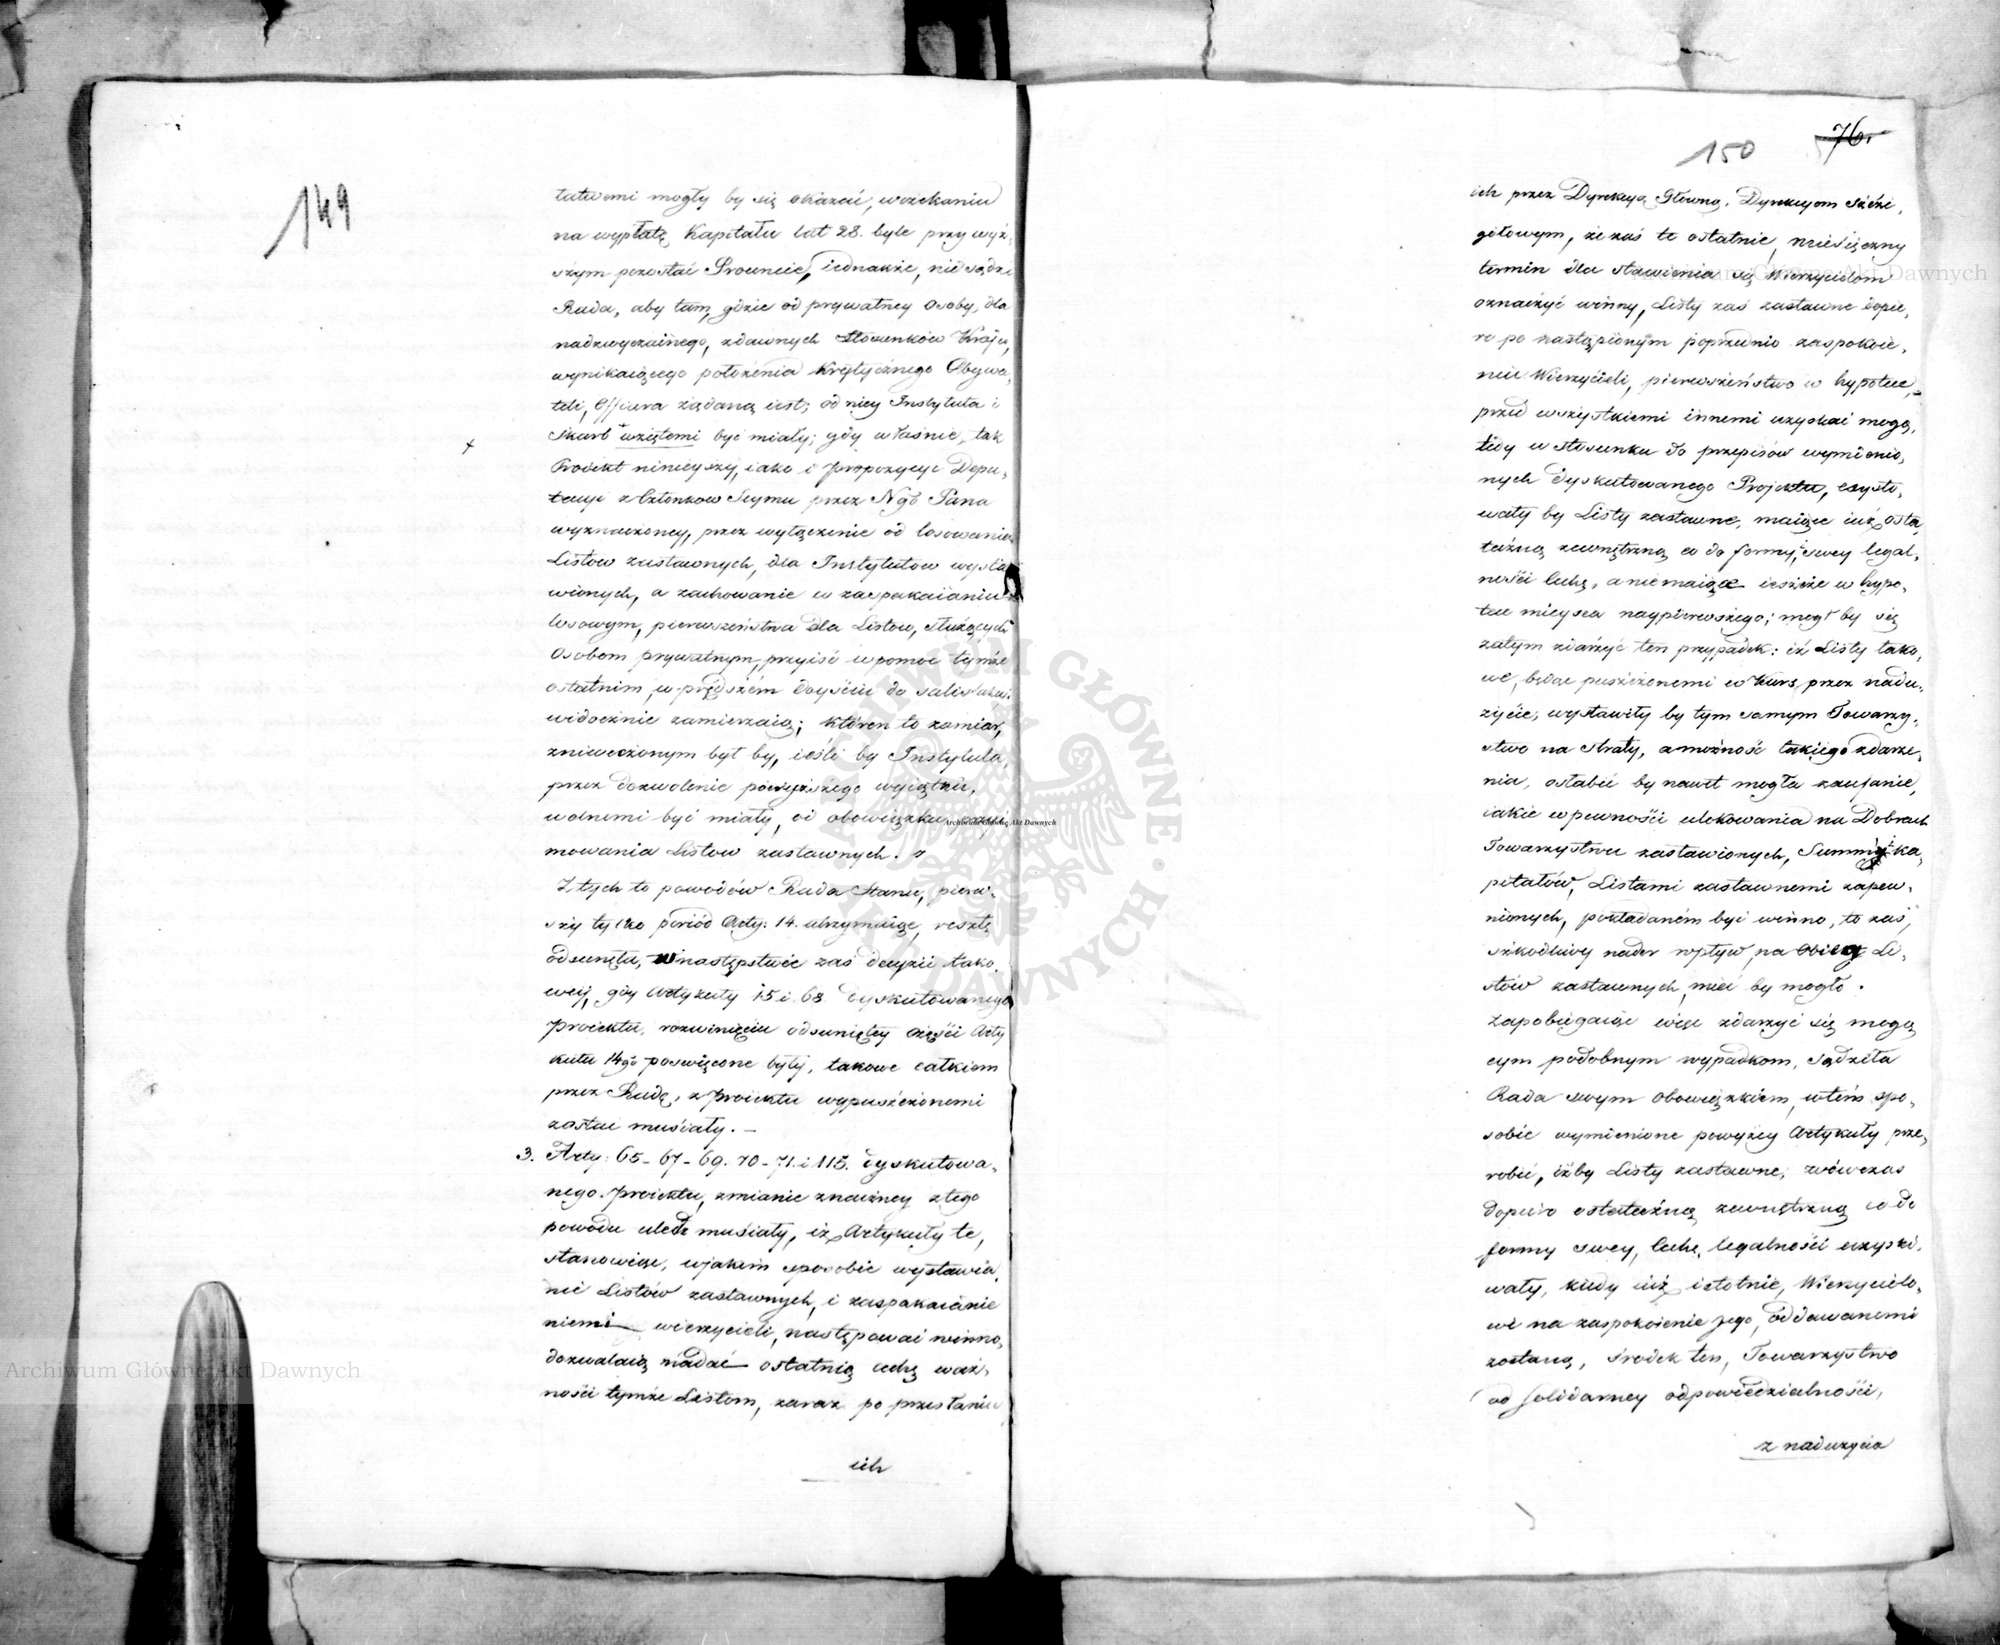 149
tatwemi mogły by się okazać, wczekaniu
na wypłatę Kapitału lat 28. byle przy wyż,
szym pozostać Prowencie, iednakże, nie sądzi
Rada, aby tam, gdzie od prywatney osoby, dla
nadzwyczainego, zdawnych Stosunków Kraju,
wynikaiącego położenia krytycznego Obywa,
teli, Offiara żądaną iest; od niey Instytuta i
Skarb + wziętemi być miały; gdy właśnie, tak
Proiekt ninieyszy, iako i propozycye Depu,
tacyi z Członkow Seymu przez Ngo Pana
wyznaczoney, przez wyłączenie od losowania
Listow zastawnych, dla Instytutow wysta
wionych, a zachowanie w zaspakaianiu
losowym, pierwszeństwa dla Listow, służących
Osobom prywatnym, przyiść w pomoc tymże
ostatnim, w prędszém doyściu do
widocznie zamierzaią; któren to zamiar,
zniweczonym był by, ieśli by Instytuta,
przez dozwolenie powyższego wyiątku,
wolnemi być miały, od obowiązku przyi
mowania Listow zastawnych.
Z tych to powodów Rada Stanu, pierw,
szy tylko period Arty: 14. utrzymuiąc, resztę
odsunęła, w następstwie zaś decyzii tako,
wey, gdy Artykuły 15 i 68 dyskutowanego
Proiektu, rozwinięciu odsuniętey części Arty
kułu 14go poswięcone były, takowe całkiem
przez Radę, z proiektu wypuszczonemi
zostać musiały. —
3. Arty: 65 - 67 - 69. 70 - 71. i 115. dyskutowa,
nego. proiektu, zmianie znaczney z tego
powodu uledz musiały, iż Artykuły te,
stanowiąc, wjakim sposobie wystawia,
nie Listów zastawnych, i zaspakaianie
niemi wierzycieli, następować winno,
dozwalaią nadać ostatnią cechę waż,
ności tymże Listom, zaraz po przesłaniu
ich
150
76.
ich przez Dyrekcyą Główną, Dyrekcyom szcze,
gółowym, że zaś te ostatnie, miesięczny
termin dla stawienia się Wierzycielom
oznaczyć winny, Listy zaś zastawne dopie,
ro po nastąpionym poprzednio zaspokoie,
niu Wierzycieli, pierwszeństwo w hypotece,
przed wszystkiemi innemi uzyskać mogą,
tedy w stosunku do przepisów wymienio,
nych dyskutowanego Projektu, exysto,
wały by Listy zastawne, maiące iuż osta
teczną zewnętrzną co do formy, swey legal,
ności cechę, a niemaiące ieszcze w hypo,
tece mieysca naypierwszego; mogł by się
zatym zdarzyć ten przypadek: iż Listy tako,
we, będąc puszczonemi w kurs, przez nadu,
życie, wystawiły by tym samym Towarzy,
stwo na straty, a możność takiego zdarze,
nia, osłabić by nawet mogła zaufanie,
iakie w pewności ulokowania na Dobrach
Towarzystwu zastawionych, Summy ka,
pitałów, Listami zastawnemi zapew,
nionych, pokładaném być winno, to zaś,
szkodliwy nader wpływ, na obieg Li,
stów zastawnych, mieć by mogło.
Zapobiegaiąc więc zdarzyć się mogą
cym podobnym wypadkom, sądziła
Rada swym obowiązkiem, w tém spo,
sobie wymienione powyżey Artykuły prze,
robić, iżby Listy zastawne, wówczas
dopiéro ostateczną zewnętrzną co do
formy swey, cechę, legalności uzyski,
wały, kiedy iuż istotnie, Wierzycielo,
wi na zaspokoienie jego, oddawanemi
zostaną, środek ten, Towarzystwo
od solidarney odpowiedzialności,
z nadużycia
Archiwum Główne Akt Dawnych
Archiwum Główne Akt Dawnych
Archiwum Główne Akt Dawnych
ARCHIWUM GŁÓWNE AKT DAWNYCH